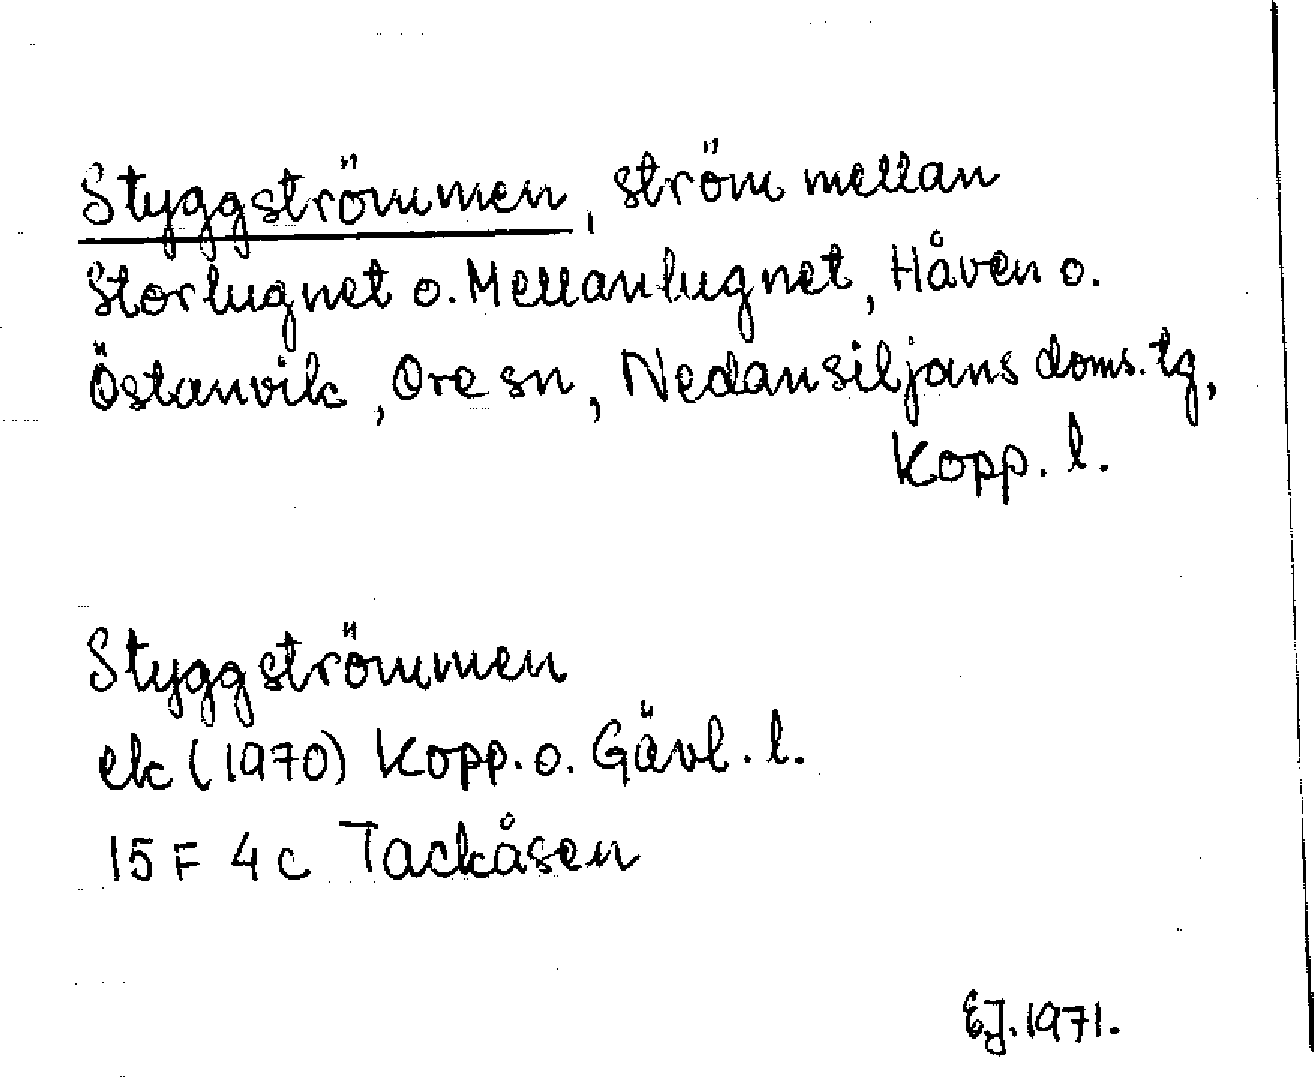 Styggströmmen, ström mellan
Storlugnet o. Mellanlugnet, Håven o.
Östanvik, Ore sn, Nedansiljans doms. tg,
Kopp. l.
Styggströmmen
ek (1970) Kopp. o. Gävl. l.
15 F 4 c Tackåsen
EJ. 1971.